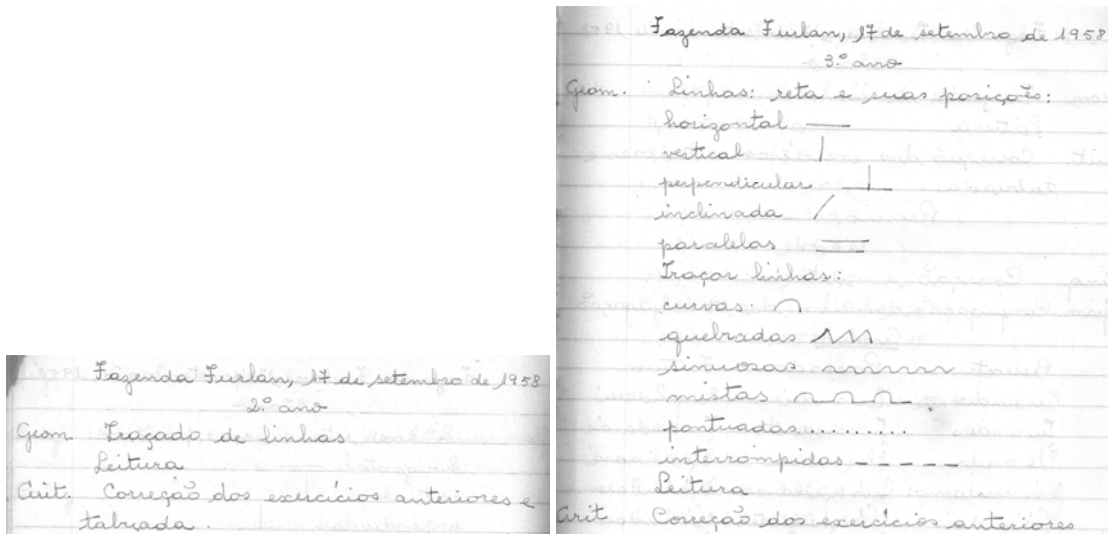 Fazenda Furlan, 17 de setembro de 1958
2.º ano
Geom. Traçado de linhas
Leitura
Arit. Correção dos exercícios anteriores e
tabuada.
Fazenda Furlan, 17 de setembro de 1958
3.º ano
Geom. Linhas: reta e suas posições:
horizontal
vertical
perpendicular
inclinada
paralelas
Traçar linhas:
curvas:
quebradas
sinuosas
mistas
pontuadas.........
interrompidas - - - - -
Leitura
Arit Correção dos exercícios anteriores